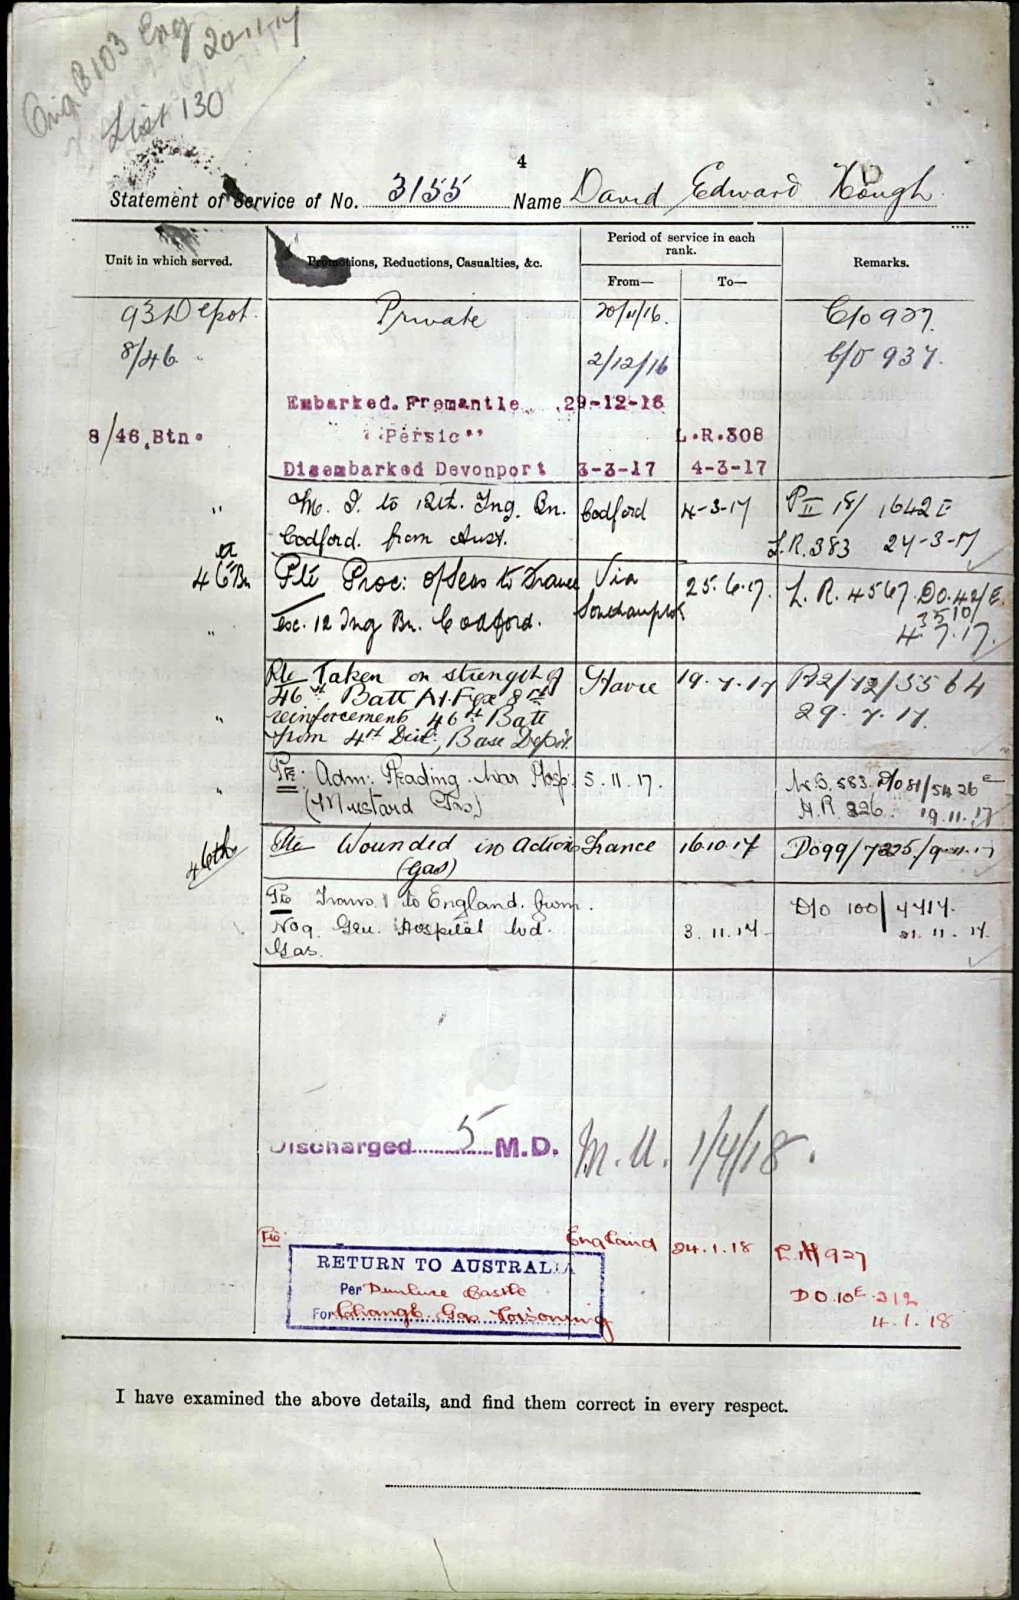 Orig B103 Eng 20-11-17
List 130
4
Statement of Service of No. 3155 Name David Edward Hough
Unit in which served.
Promotions, Reductions, Casualties, &c.
Period of service in each rank.
From—
To—
Remarks.
93 Depot. Private 20/11/16. C/o 927.
8/46 " 2/12/16 C/o 937.
Embarked. Fremantle 29-12-16
8/46 Btn. "Persic" L.R.308
Disembarked Devonport 3-3-17 4-3-17
" M. I. to 12th. Tng. Bn. Codford 4-3-17 P II 18/ 1642 E
Codford. from Aust. L.R. 383 24-3-17
46 Bn Pte Proc: O/Seas to France Via 25.6.17. L. R. 4567. DO.42/E.
" ex. 12 Tng Bn. Codford. Southampton 3510/
4.7.17.
Pte Taken on strength of Havre 19.7.17 P2/72/5564
46th Batt A.I.F. ex 8th 29.7.17.
" reinforcements 46th Batt
from 4th Div., Base Depot.
" Pte. Adm: Reading War Hosp: 5.11.17. W.S. 583. D/O 81/5426 E
(Mustard Gas) H.R. 326. 19.11.17
46th Pte Wounded in Action France 16.10.17 DO99/7225/9.11.17
(Gas)
Pte Trans. to England. from. D/O 100/4414.
No 9. Gen. Hospital Wd. 3.11.17 21.11.17.
Gas.
Discharged 5 M.D. M.U. 1/4/18.
Pte. England 24.1.18 927
RETURN TO AUSTRALIA
Per Dunluce Castle D O. 10E 212
For Change Gas Poisoning 4.1.18
I have examined the above details, and find them correct in every respect.